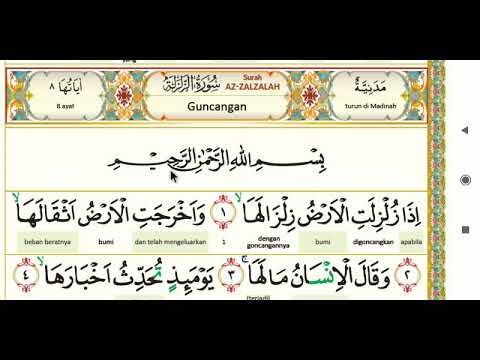 مَدَنِيَّةٌ سُوْرَةُ الزَّلْزَلَةِ Surah AZ-ZALZALAH اٰيَاتُهَا ٨
turun di Madinah Guncangan 8 ayat
بِسْمِ اللهِ الرَّحْمٰنِ الرَّحِيْمِ
اِذَا زُلْزِلَتِ الْاَرْضُ زِلْزَالَهَاۙ ١ وَاَخْرَجَتِ الْاَرْضُ اَثْقَالَهَاۙ
apabila digoncangkan bumi dengan goncangannya 1 dan telah mengeluarkan bumi beban beratnya
٢ وَقَالَ الْاِنْسَانُ مَا لَهَاۚ ٣ يَوْمَىِٕذٍ تُحَدِّثُ اَخْبَارَهَاۙ ٤
(terjadi)